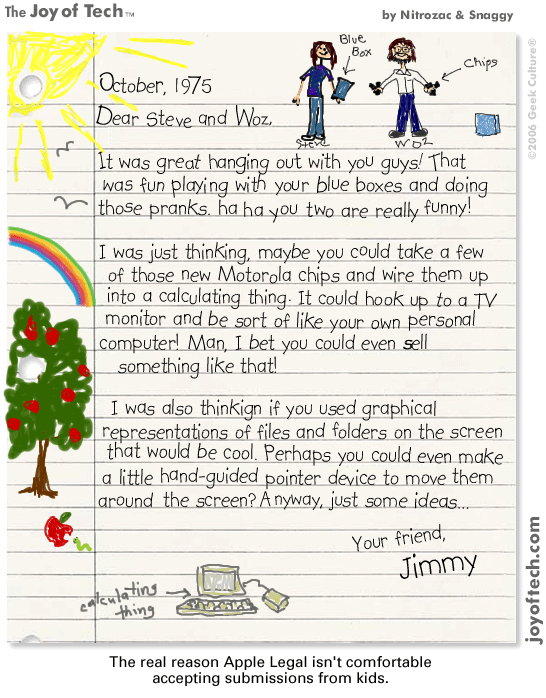 The Joy of Tech™
by Nitrozac & Snaggy
Blue
Box
Chips
Steve
Woz
October, 1975
Dear Steve and Woz,
It was great hanging out with you guys! That
was fun playing with your blue boxes and doing
those pranks. ha ha you two are really funny!
I was just thinking, maybe you could take a few
of those new Motorola chips and wire them up
into a calculating thing. It could hook up to a TV
monitor and be sort of like your own personal
computer! Man, I bet you could even sell
something like that!
I was also thinkign if you used graphical
representations of files and folders on the screen
that would be cool. Perhaps you could even make
a little hand-guided pointer device to move them
around the screen? Anyway, just some ideas...
Your friend,
Jimmy
calculating
thing
©2006 Geek Culture®
joyoftech.com
The real reason Apple Legal isn't comfortable
accepting submissions from kids.